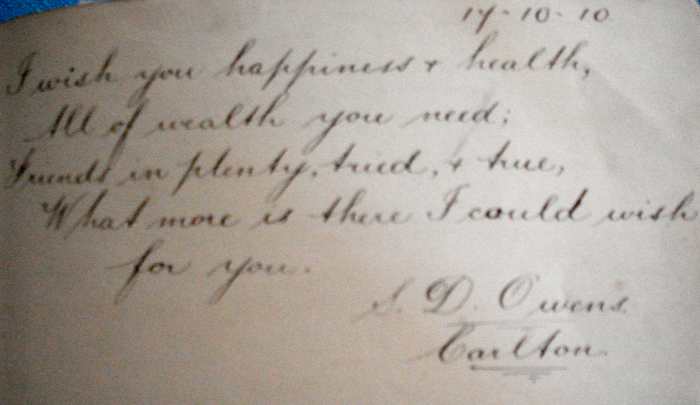 17-10-10
I wish you happiness & health,
All of wealth you need;
Friends in plenty, tried, & true,
What more is there I could wish
for you.
S. D. Owens.
Carlton.